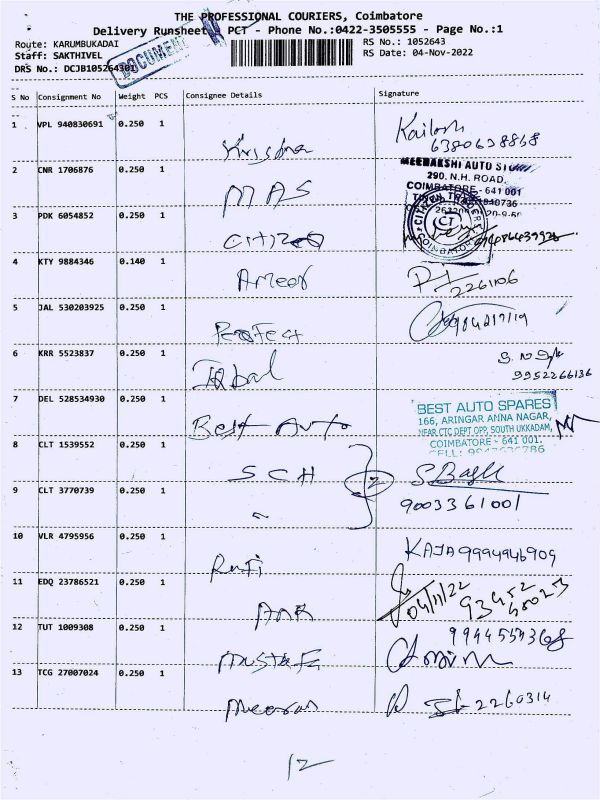 THE PROFESSIONAL COURIERS, Coimbatore
Delivery Runsheet - PCT - Phone No.:0422-3505555 - Page No.:1
Route: KARUMBUKADAI RS No.: 1052643
Staff: SAKTHIVEL RS Date: 04-Nov-2022
DRS No.: DCJB105264301
DOCUMENT
S No Consignment No Weight PCS Consignee Details Signature
1 VPL 940830691 0.250 1 Krishna Kailash
6380638868
2 CNR 1706876 0.250 1 MAS MEENAKSHI AUTO
290. N.H. ROAD,
COIMBATORE - 641 001
3 PDK 6054852 0.250 1 Citizen CITIZEN TRADERS
CT
COIMBATORE
4 KTY 9884346 0.140 1 Ameer 2261106
5 JAL 530203925 0.250 1 Perfect
6 KRR 5523837 0.250 1 Iqbal
9952266136
7 DEL 528534930 0.250 1 Best Auto BEST AUTO SPARES
166, ARINGAR ANNA NAGAR,
NEAR CTC DEPT OPP, SOUTH UKKADAM,
COIMBATORE - 641 001.
8 CLT 1539552 0.250 1 SCH 2
9 CLT 3770739 0.250 1 " 9003361001
10 VLR 4795956 0.250 1 KAJA 9994946909
11 EDQ 23786521 0.250 1 04/11/22
12 TUT 1009308 0.250 1 Mustafa
13 TCG 27007024 0.250 1 Meeran 2260314
12